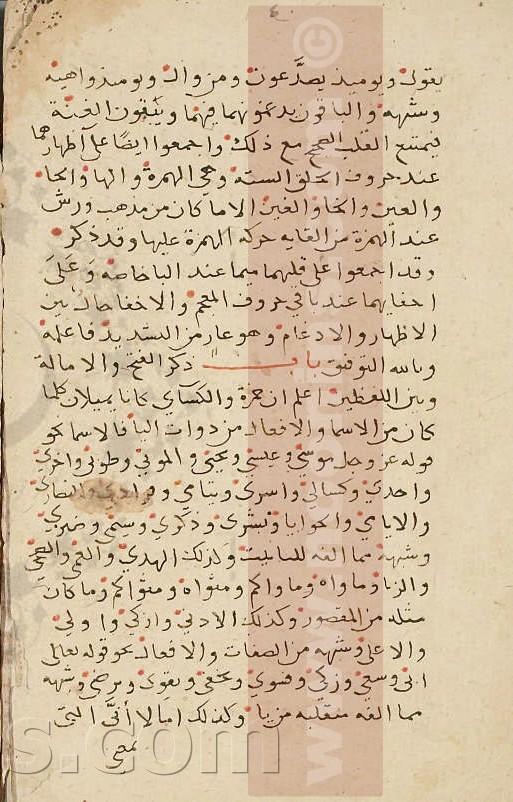 يقول ويوميذ يصدعون ومن وال ويوميذ واهية
وشبهه والباقون يدغمونهما فيهما ويبقون الغنة
فيمتنع القلب الصحيح مع ذلك واجمعوا ايضا على اظهارهما
عند حروف الحلق الستة وهي الهمزة والها والحا
والعين والخا والغين الا ما كان من مذهب ورش
عند الهمزة من القايه حركة الهمزة عليها وقد ذكر
وقد اجمعوا على قلبهما ميما عند البا خاصة وعلى
اخفايهما عند باقي حروف المعجم والاخفا حال بين
الاظهار والادغام وهو عار من التشديد فاعلمه
وبالله التوفيق باب ذكر الفتح والامالة
وبين اللفظين اعلم ان حمزة والكسآي كانا يميلان كلما
كان من الاسما والافعال من ذوات اليا فالاسما نحو
قوله عز وجل موسى وعيسى ويحيى والموتى وطوبى واخرى
واحدى وكسالى واسرى ويتامى وفرادى والنصارى
والايامى والحوايا وبشرى وذكرى وسيمى وضيزى
وشبهه مما الفه للتانيث وكذلك الهدى والعمى والضحى
والزنا وماواه وماواكم ومثواه ومثواكم وما كان
مثله من المقصور وكذلك الادنى وازكى واولى
والاعلى وشبهه من الصفات والافعال نحو قوله تعالى
ابى وسعى وزكى وفسوى ويخفى ويقوى ويرضى وشبهه
مما الفه منقلبة من يا وكذلك امالا انى التي
بمعنى